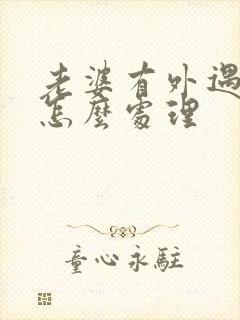 老婆有外遇
怎麼處理
童心永駐